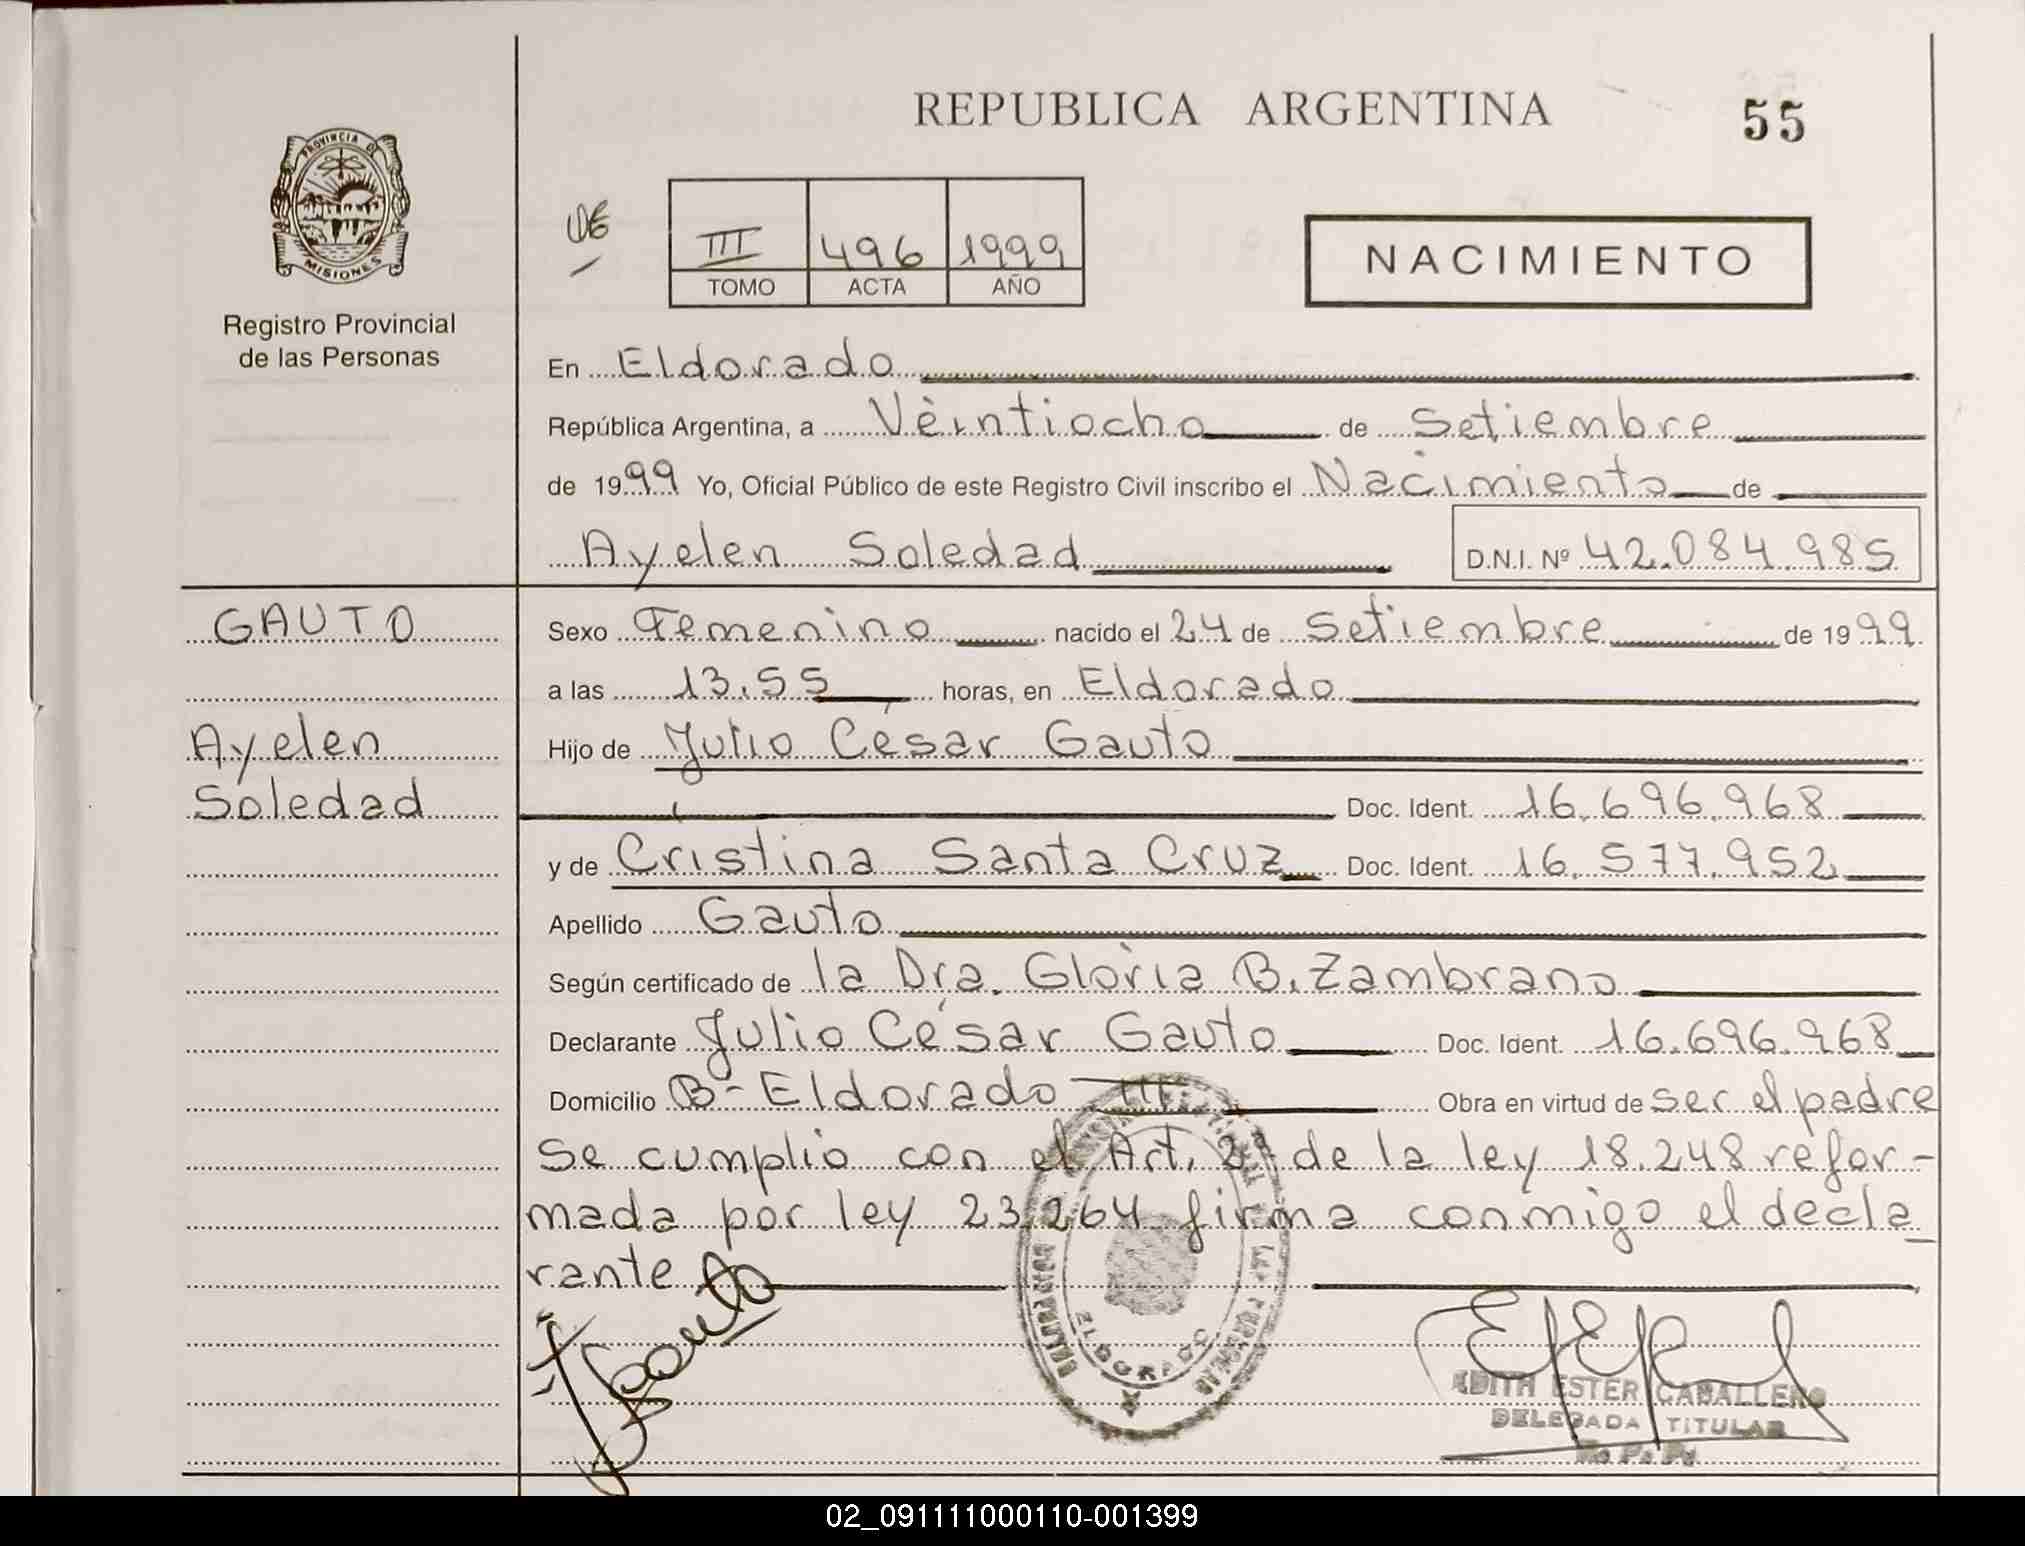 REPUBLICA ARGENTINA
55
PROVINCIA DE
MISIONES
Registro Provincial
de las Personas
III 496 1999
TOMO ACTA AÑO
NACIMIENTO
En Eldorado
República Argentina, a Veintiocho de Setiembre
de 1999 Yo, Oficial Público de este Registro Civil inscribo el Nacimiento de
Ayelen Soledad D.N.I. Nº 42.084.985
GAUTO
Ayelen
Soledad
Sexo Femenino nacido el 24 de Setiembre de 1999
a las 13.55 horas, en Eldorado
Hijo de Julio César Gauto
Doc. Ident. 16.696.968
y de Cristina Santa Cruz Doc. Ident. 16.577.952
Apellido Gauto
Según certificado de la Dra. Gloria B. Zambrano
Declarante Julio César Gauto Doc. Ident. 16.696.968
Domicilio Bº Eldorado Obra en virtud de ser el padre
se cumplio con el Art. de la ley 18.248 refor-
mada por ley 23.264 firma conmigo el decla
rante
ELDORADO
EDITH ESTER CABALLERO
DELEGADA TITULAR
02_091111000110-001399